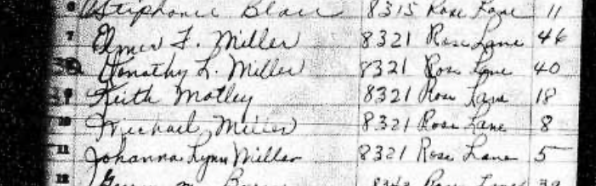 6 Stephanie Blair 8315 Rose Lane 11
7 Elmer F. Miller 8321 Rose Lane 46
Dorathy L. Miller 8321 Rose Lane 40
9 Keith Motley 8321 Rose Lane 18
10 Michael Miller 8321 Rose Lane 8
11 Johanna Lynn Miller 8321 Rose Lane 5
12